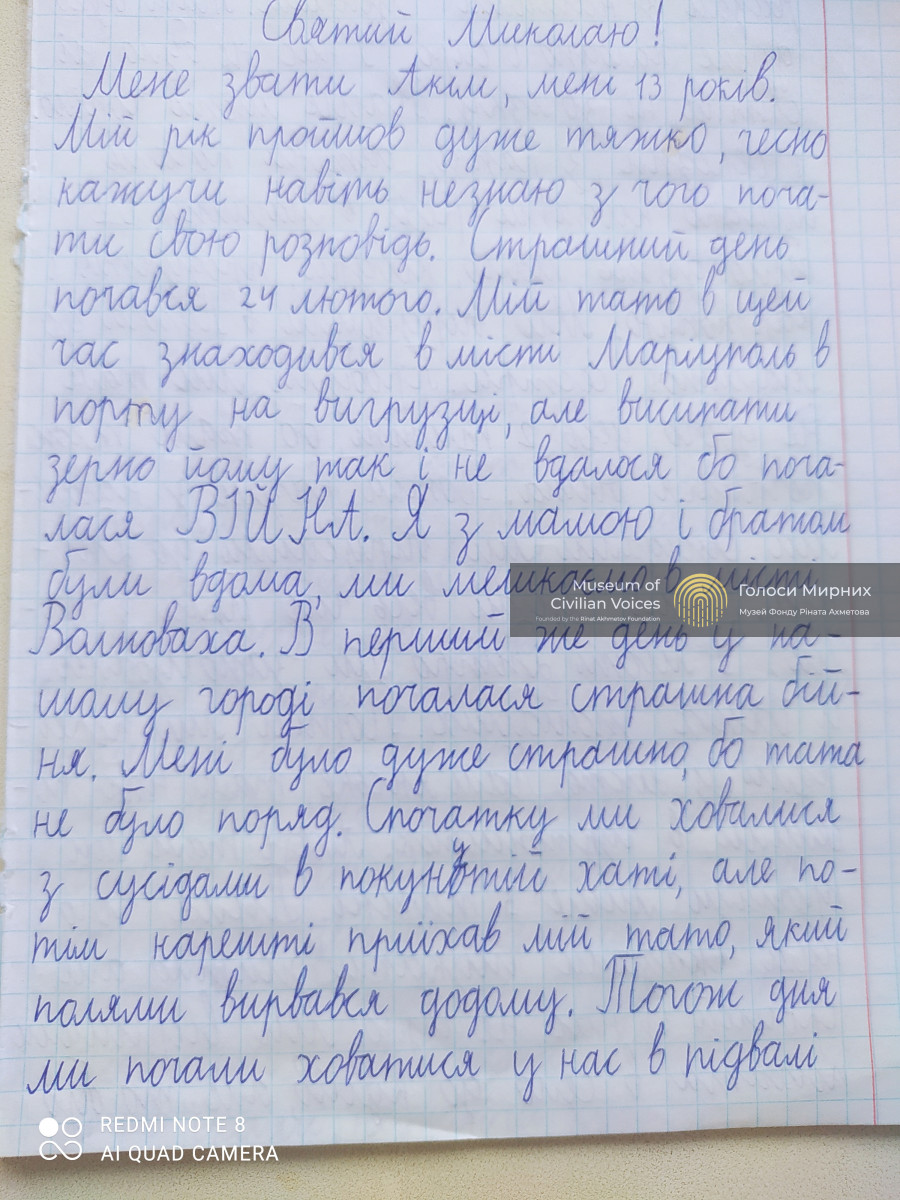 Святий Миколаю!
Мене звати Акім, мені 13 років.
Мій рік пройшов дуже тяжко, чесно
кажучи навіть незнаю з чого поча-
ти свою розповідь. Страшний день
почався 24 лютого. Мій тато в цей
час знаходився в місті Маріуполь в
порту на вигрузці, але висипати
зерно йому так і не вдалося бо поча-
лася ВІЙНА. Я з мамою і братом
були вдома, ми мешкаємо в місті
Museum of
Civilian Voices
Founded by the Rinat Akhmetov Foundation
Голоси Мирних
Музей Фонду Ріната Ахметова
Волноваха. В перший же день у на-
шому городі почалася страшна бій-
ня. Мені було дуже страшно, бо тата
не було поряд. Спочатку ми ховалися
з сусідами в покинутій хаті, але по-
тім нарешті приїхав мій тато, який
полями вирвався додому. Тогож дня
ми почали ховатися у нас в підвалі
REDMI NOTE 8
AI QUAD CAMERA